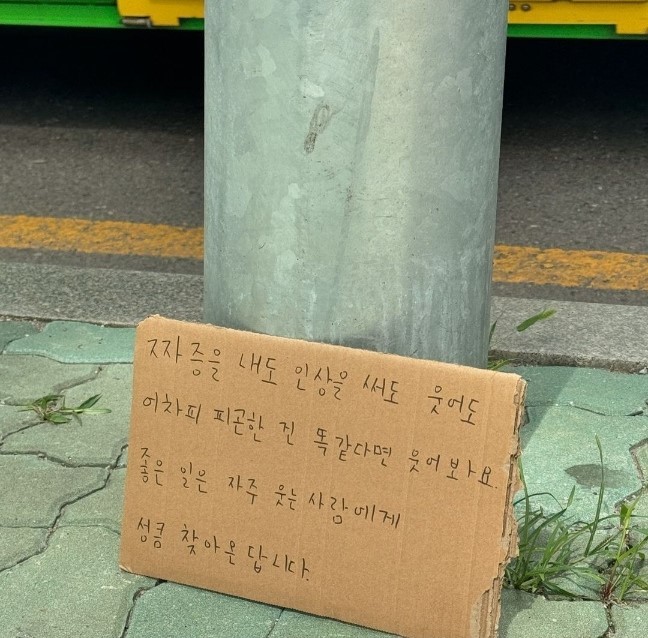 짜증을 내도 인상을 써도 웃어도
어차피 피곤한 건 똑같다면 웃어보아요.
좋은 일은 자주 웃는 사람에게
성큼 찾아온답니다.